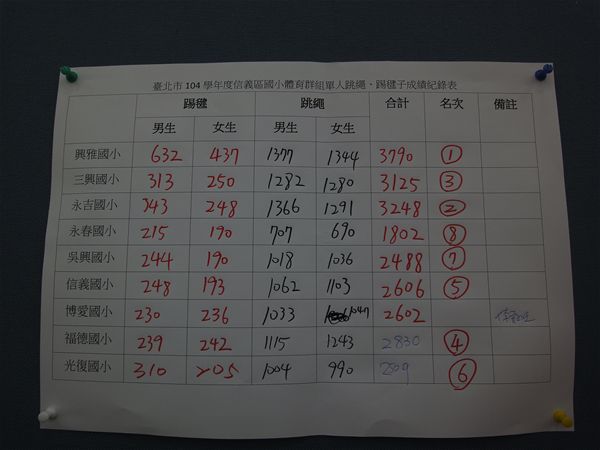 臺北市 104 學年度信義區國小體育群組單人跳繩、踢毽子成績紀錄表
踢毽 跳繩 合計 名次 備註
男生 女生 男生 女生
興雅國小 632 437 1377 1344 3790 1
三興國小 313 250 1282 1280 3125 3
永吉國小 343 248 1366 1291 3248 2
永春國小 215 190 707 690 1802 8
吳興國小 244 190 1018 1036 2488 7
信義國小 248 193 1062 1103 2606 5
博愛國小 230 236 1033 1047 2602
福德國小 239 242 1115 1243 2830 4
光復國小 310 205 1004 990 2509 6